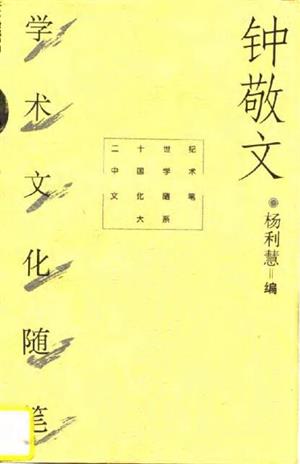 钟敬文
学术文化随笔
二十世纪
中国学术
文化随笔
大系
杨利慧=编